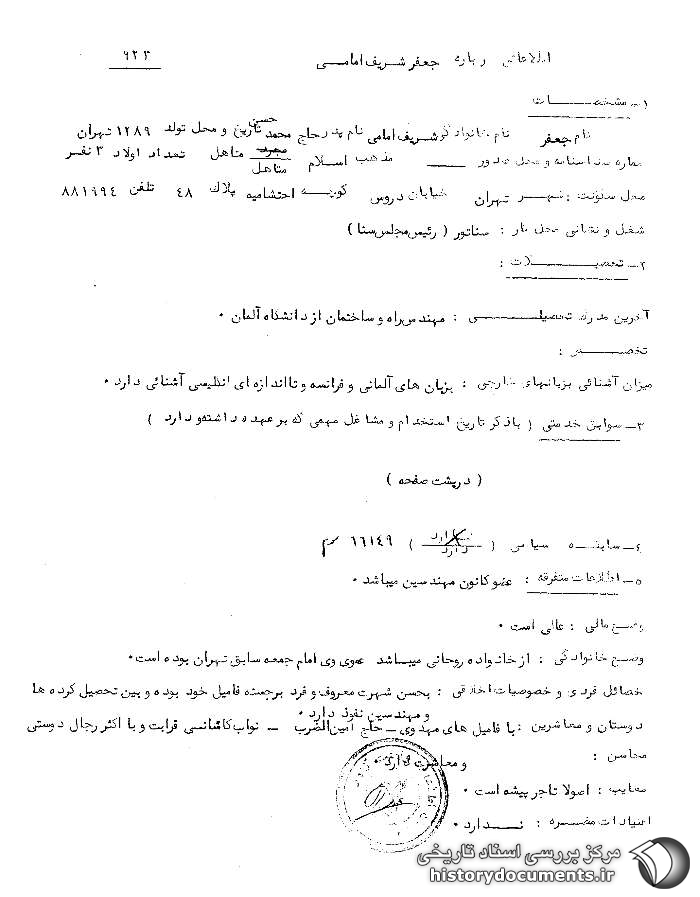 ۹۲۳
اطلاعاتی درباره جعفر شریف امامی
۱ـ مشخصات
نام جعفر نام خانوادگی شریف امامی نام پدر حاج محمد حسین تاریخ و محل تولد ۱۲۸۹ تهران
شماره شناسنامه و محل صدور ـــ مذهب اسلام مجرد متاهل متاهل تعداد اولاد ۳ نفر
محل سکونت : شهر تهران خیابان دروس کوچه احتشامیه پلاک ۴۸ تلفن ۸۸۱۹۹۴
شغل و نشانی محل کار : سناتور ( رئیس مجلس سنا )
۲ـ تحصیلات :
آخرین مدرک تحصیلی : مهندس راه و ساختمان از دانشگاه آلمان ۰
تخصص :
میزان آشنائی بزبانهای خارجی : بزبان های آلمانی و فرانسه و تا اندازه ای انگلیسی آشنائی دارد ۰
۳ـ سوابق خدمتی ( با ذکر تاریخ استخدام و مشاغل مهمی که بر عهده داشته و دارد )
( در پشت صفحه )
۴ـ سابقه سیاسی ( ندارد دارد ) ۶۶۱۴۹
۵ـ اطلاعات متفرقه : عضو کانون مهندسین میباشد ۰
وضع مالی : عالی است ۰
وضع خانوادگی : از خانواده روحانی میباشد عموی وی امام جمعه سابق تهران بوده است ۰
خصائل فردی و خصوصیات اخلاقی : بحسن شهرت معروف و فرد برجسته فامیل خود بوده و بین تحصیل کرده ها
و مهندسین نفوذ دارد ۰
دوستان و معاشرین : با فامیل های مهدوی ـ حاج امین الضرب ـ نواب کاشانی قرابت و با اکثر رجال دوستی
و معاشرت دارد ۰
محاسن :
معایب : اصولا تاجر پیشه است ۰
اعتیادات مضره : ندارد ۰
مرکز بررسی اسناد تاریخی
historydocuments.ir